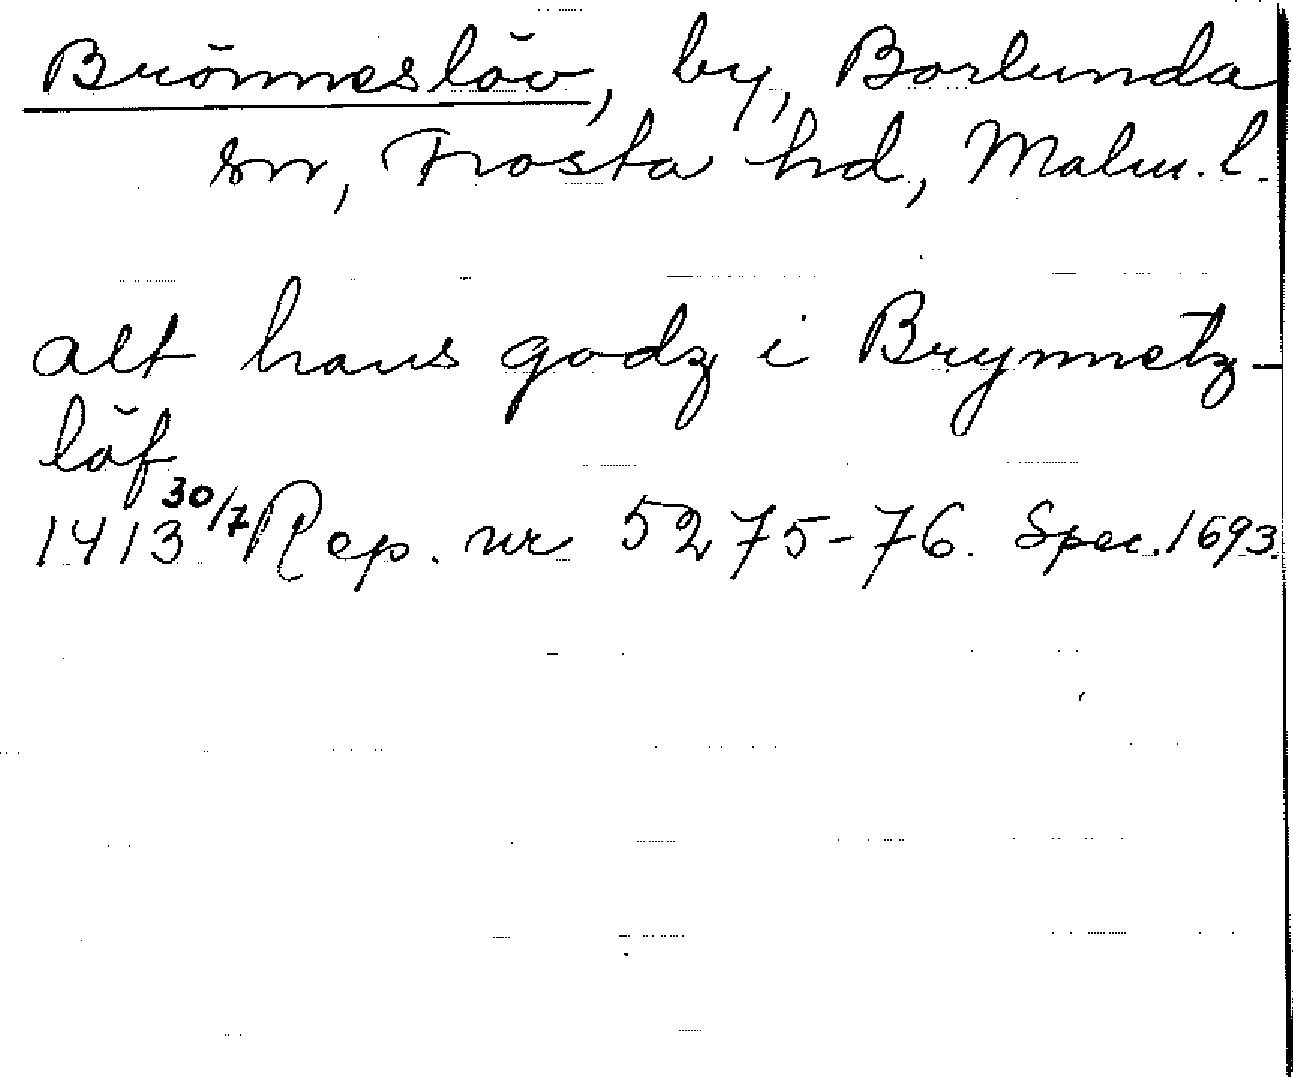 Brönneslöv, by, Borlunda
sn, Frosta hd, Malm. l.
alt hans godz i Brynnetz-
löf
1413 30/7 Rep. nr 5275-76. Spec. 1693.